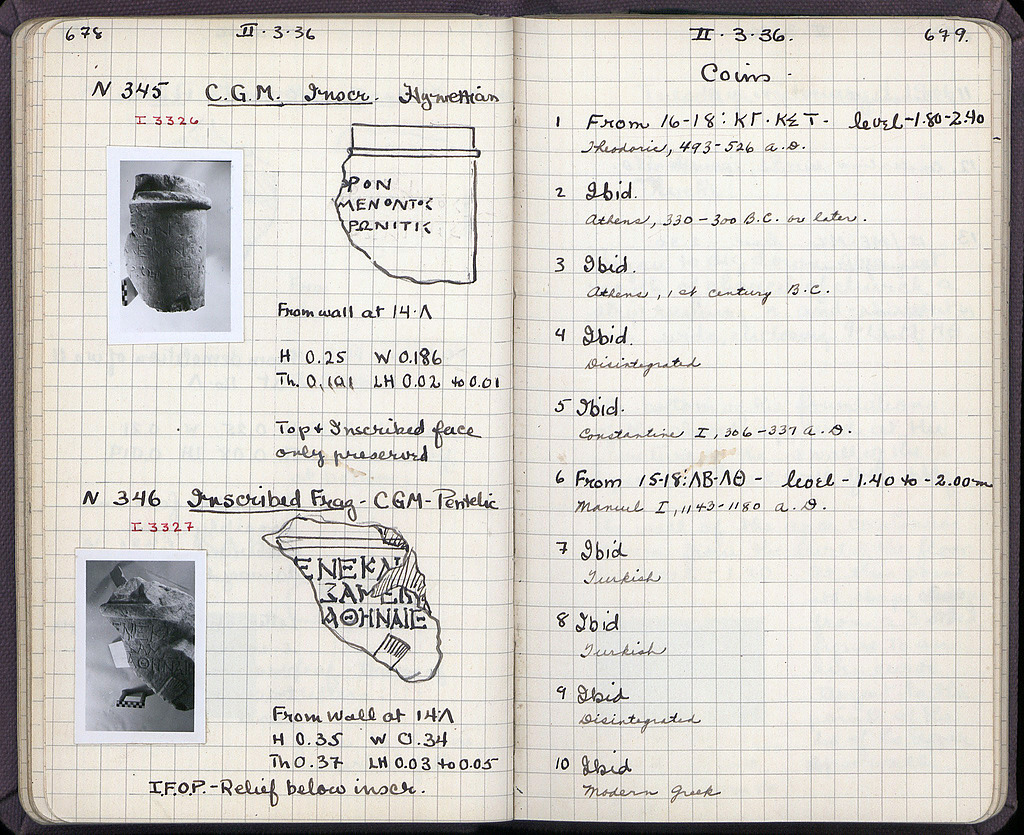 678
II · 3 · 36
N 345 C.G.M. Inscr. Hymettian
I 3326
ΡΟΝ
ΜΕΝΟΝΤΟΣ
ΡΩΝΙΤΙΣ
From wall at 14·Λ
H 0.25 W 0.186
Th. 0.101 LH 0.02 to 0.01
Top & Inscribed face
only preserved
N 346 Inscribed Frag - CGM - Pentelic
I 3327
ΕΝΕΚΑ
ΑΘΗΝΑΙΕ
From Wall at 14Λ
H 0.35 W 0.34
Th 0.37 LH 0.03 to 0.05
I.F.O.P. - Relief below inscr.
II · 3 · 36.
679.
Coins.
1 From 16-18: ΚΓ·ΚΣΤ - level -1.80-2.40
Theodoric, 493-526 A.D.
2 Ibid.
Athens, 330-300 B.C. or later.
3 Ibid.
Athens, 1st century B.C.
4 Ibid.
Disintegrated
5 Ibid.
Constantine I, 306-337 A.D.
6 From 15-18: ΛΒ-ΛΘ - level - 1.40 to - 2.00m
Manuel I, 1143-1180 A.D.
7 Ibid
Turkish
8 Ibid
Turkish
9 Ibid
Disintegrated
10 Ibid
Modern Greek